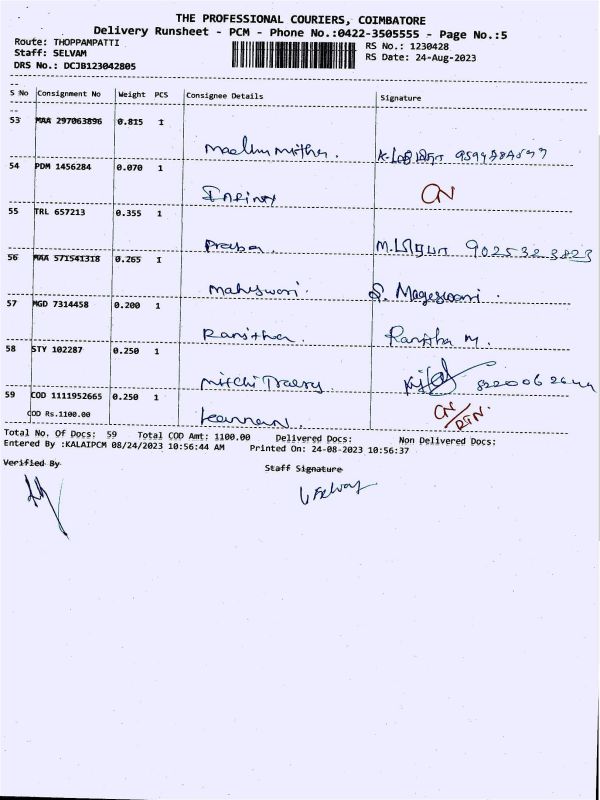 THE PROFESSIONAL COURIERS, COIMBATORE
Delivery Runsheet - PCM - Phone No.:0422-3505555 - Page No.:5
Route: THOPPAMPATTI
Staff: SELVAM
DRS No.: DCJB123042805
RS No.: 1230428
RS Date: 24-Aug-2023
S No Consignment No Weight PCS Consignee Details Signature
53 MAA 297063896 0.815 1
54 PDM 1456284 0.070 1
CN
55 TRL 657213 0.355 1
Praba. 9025323823
56 MAA 571541318 0.265 1
Maheswari. S. Mageswari.
57 MGD 7314458 0.200 1
Ranjitha. Ranjitha M.
58 STY 102287 0.250 1
59 COD 1111952665 0.250 1
COD Rs.1100.00
Kannan. CN/RTN.
Total No. Of Docs: 59 Total COD Amt: 1100.00 Delivered Docs: Non Delivered Docs:
Entered By :KALAIPCM 08/24/2023 10:56:44 AM Printed On: 24-08-2023 10:56:37
Verified By Staff Signature